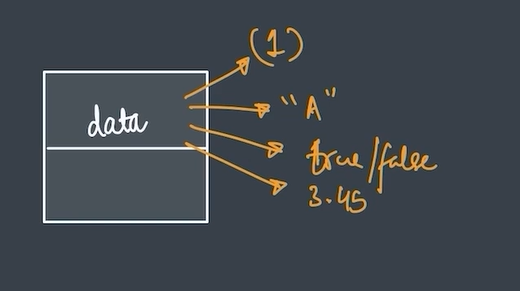 (1)
"A"
data
true/false
3.45